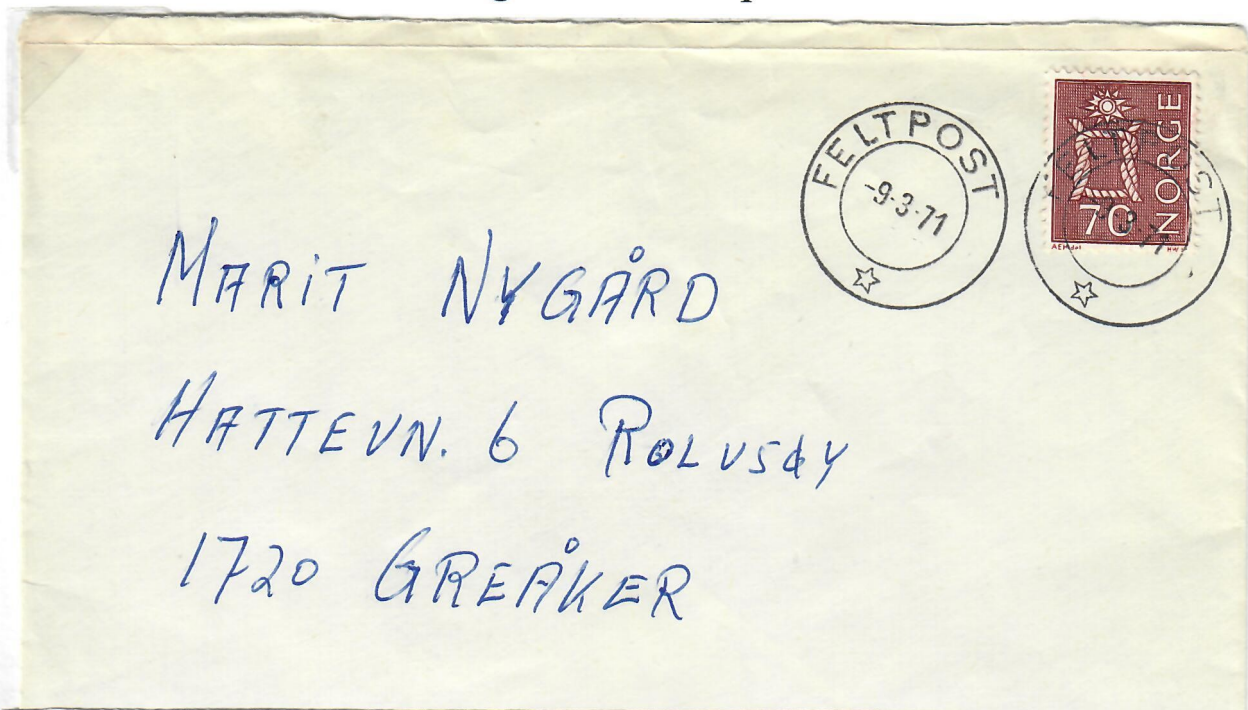 FELTPOST
-9-3-71
NORGE
70
MARIT NYGÅRD
HATTEVN. 6 ROLVSØY
1720 GREÅKER